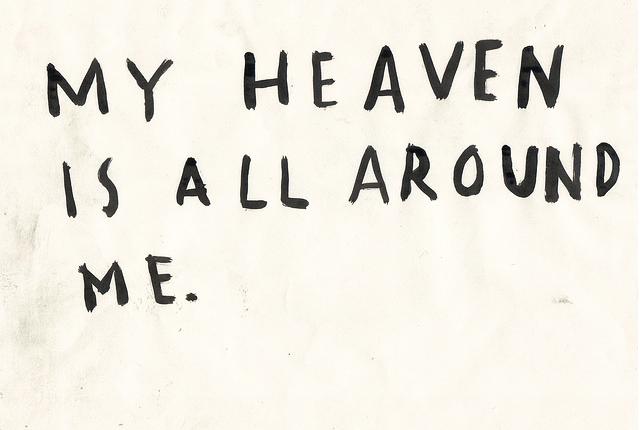 MY HEAVEN
IS ALL AROUND
ME.